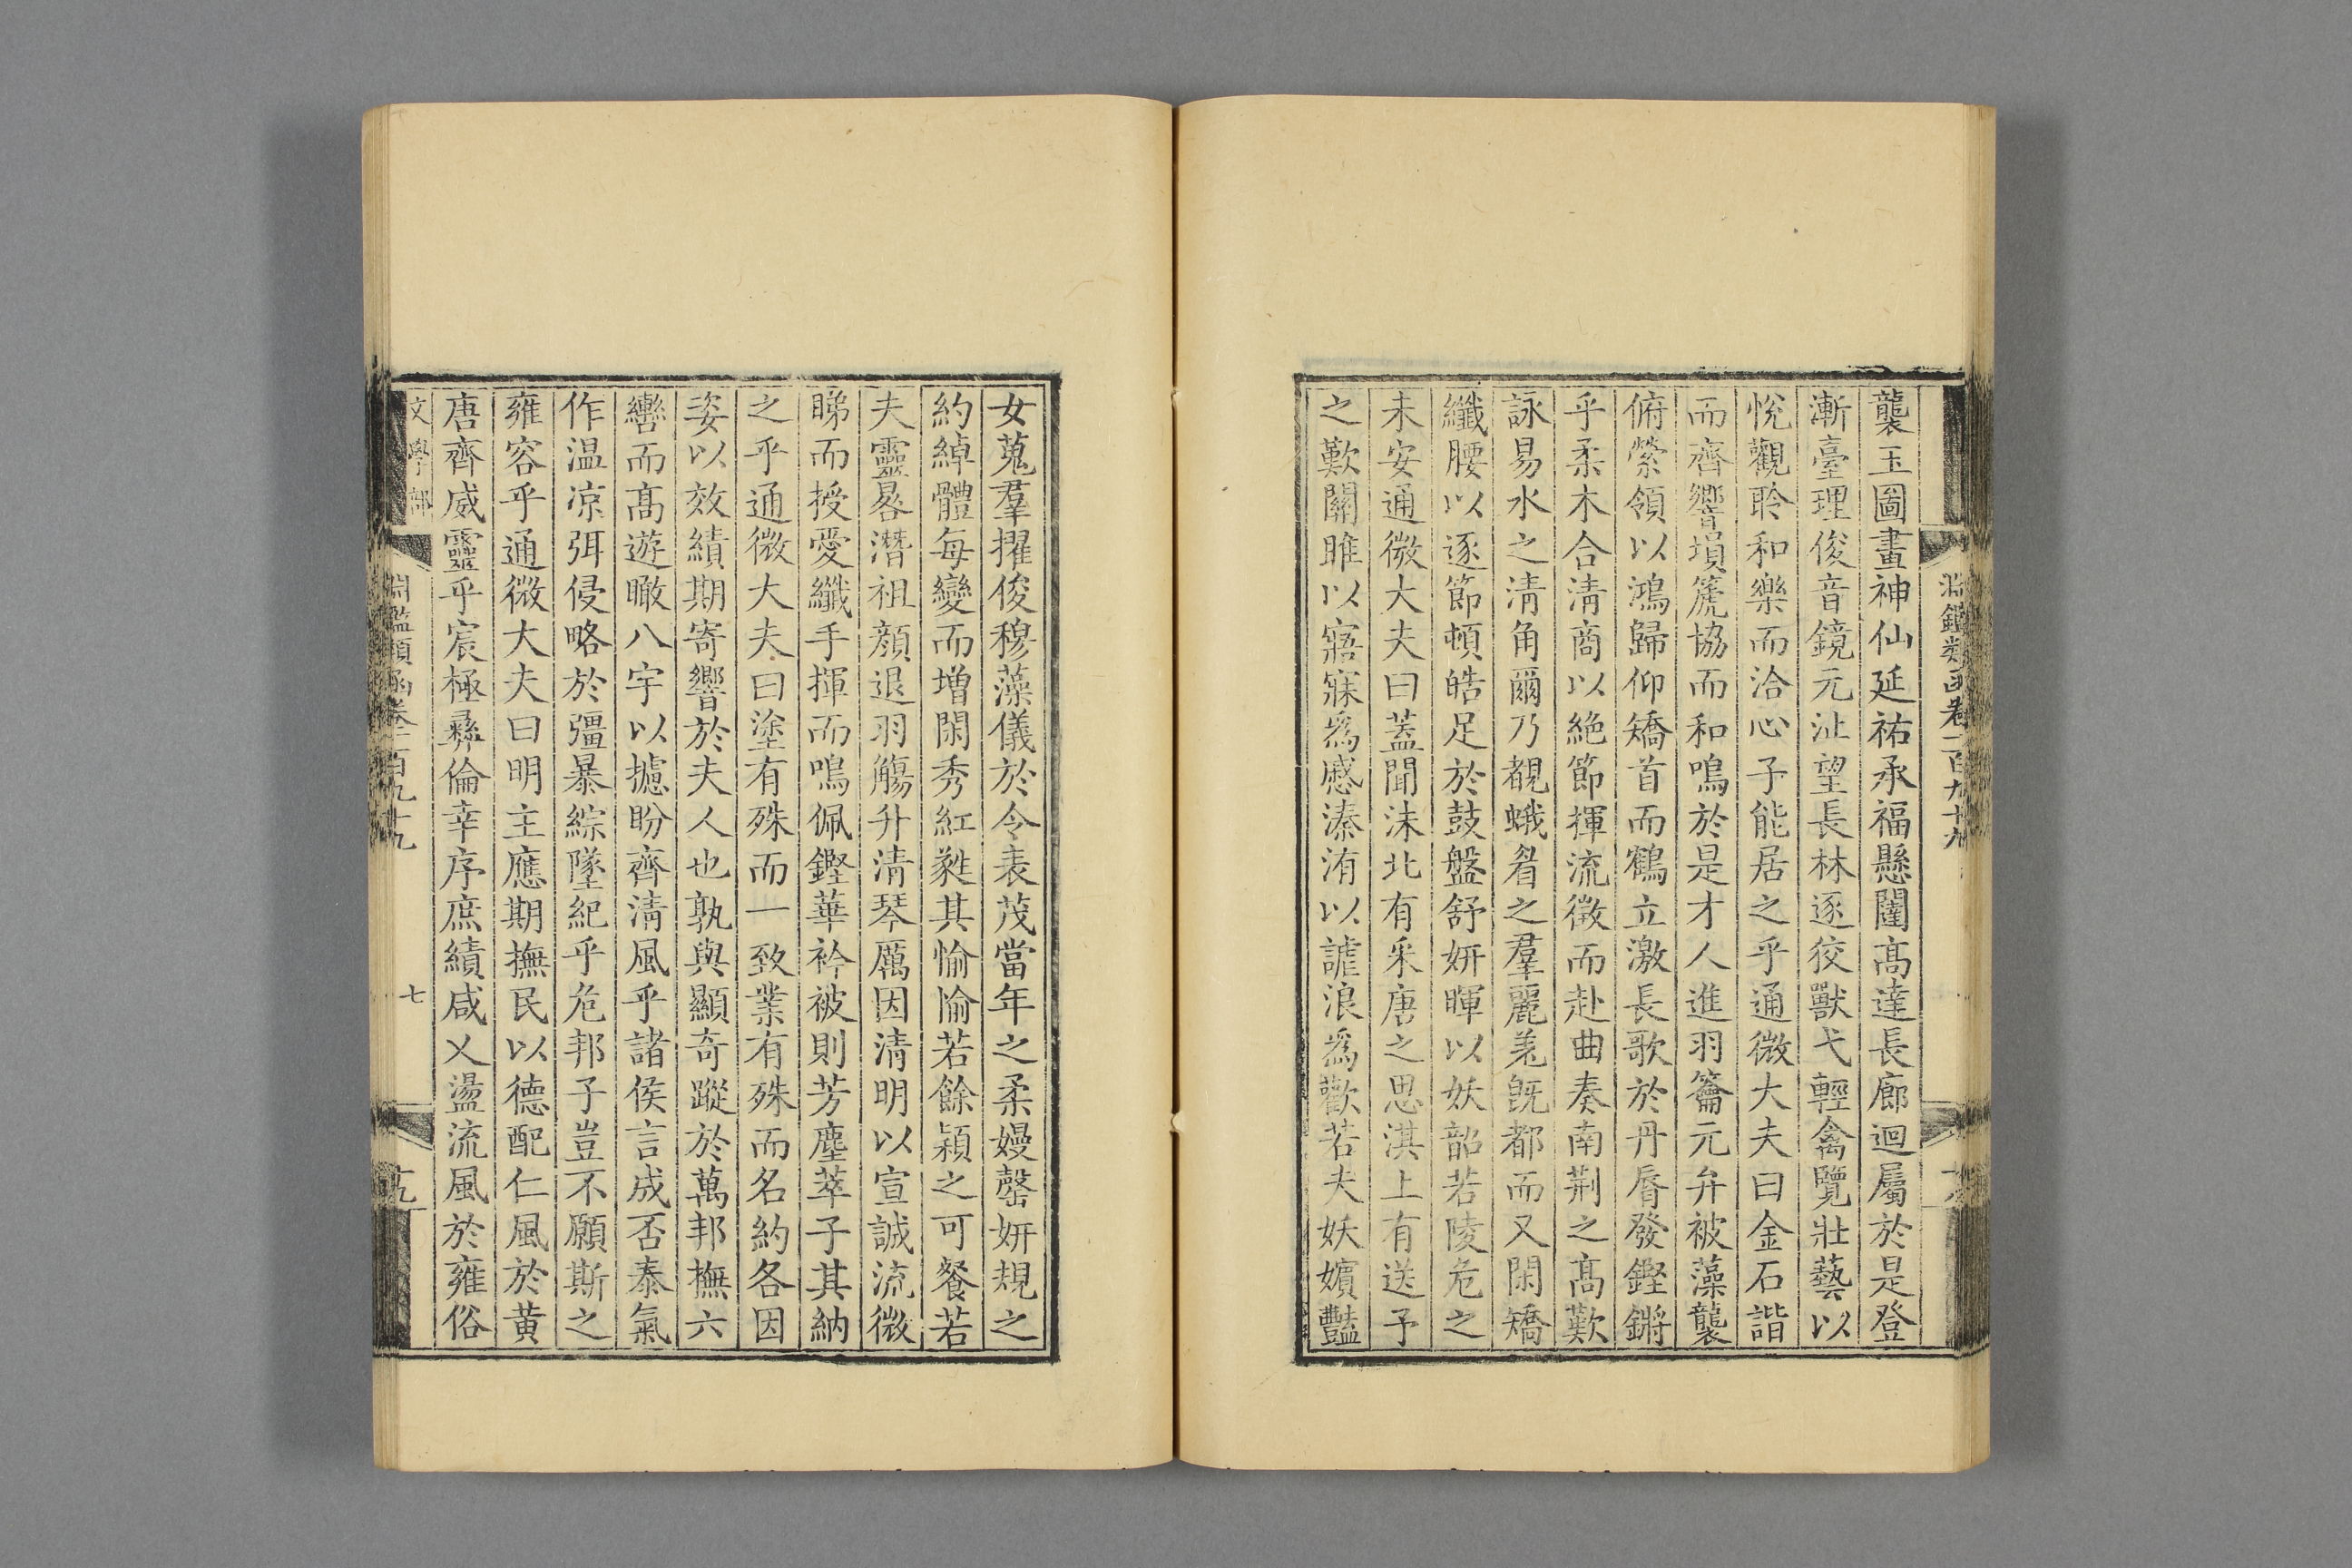 淵鑑類函卷二百九十九
襲玉圖畫神仙延祐承福懸闥高達長廊迴屬於是登
漸臺理俊音鏡元沚望長林逐狡獸弋輕禽覽壯藝以
悅觀聆和樂而洽心子能居之乎通微大夫曰金石諧
而齊響塤篪協而和鳴於是才人進羽籥元弁被藻襲
俯縈領以鴻歸仰矯首而鶴立激長歌於丹脣發鏗鏘
乎柔木合清商以絶節揮流徵而赴曲奏南荆之高歎
詠易水之清角爾乃覩蛾眉之羣麗羌旣都而又閑矯
纖腰以逐節頓皓足於鼓盤舒妍暉以妖韶若陵危之
未安通微大夫曰蓋聞沬北有釆唐之思淇上有送予
之歎關雎以寤寐爲慼溱洧以謔浪爲歡若夫妖嬪豔
女蒐羣擢俊穆藻儀於令表茂當年之柔嫚罄妍規之
約綽體每變而增閑秀紅蕤其愉愉若餘穎之可餐若
夫靈晷潛祖顔退羽觴升清琴厲因清明以宣誠流微
睇而授愛纖手揮而鳴佩鏗華衿被則芳塵萃子其納
之乎通微大夫曰塗有殊而一致業有殊而名約各因
姿以效績期寄響於夫人也孰與顯奇蹤於萬邦撫六
轡而高遊瞰八宇以攄盼齊清風乎諸侯言成否泰氣
作温涼弭侵略於彊暴綜墜紀乎危邦子豈不願斯之
雍容乎通微大夫曰明主應期撫民以德配仁風於黄
唐齊威靈乎宸極彝倫幸序庶績咸乂盪流風於雍俗
文學部
淵鑑類函卷二百九十九
七